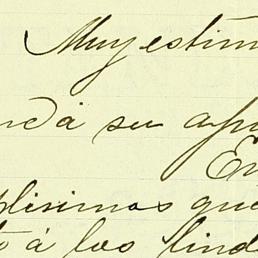 Muy estim
nd á su apr
En
plisimos que
tó á los lind